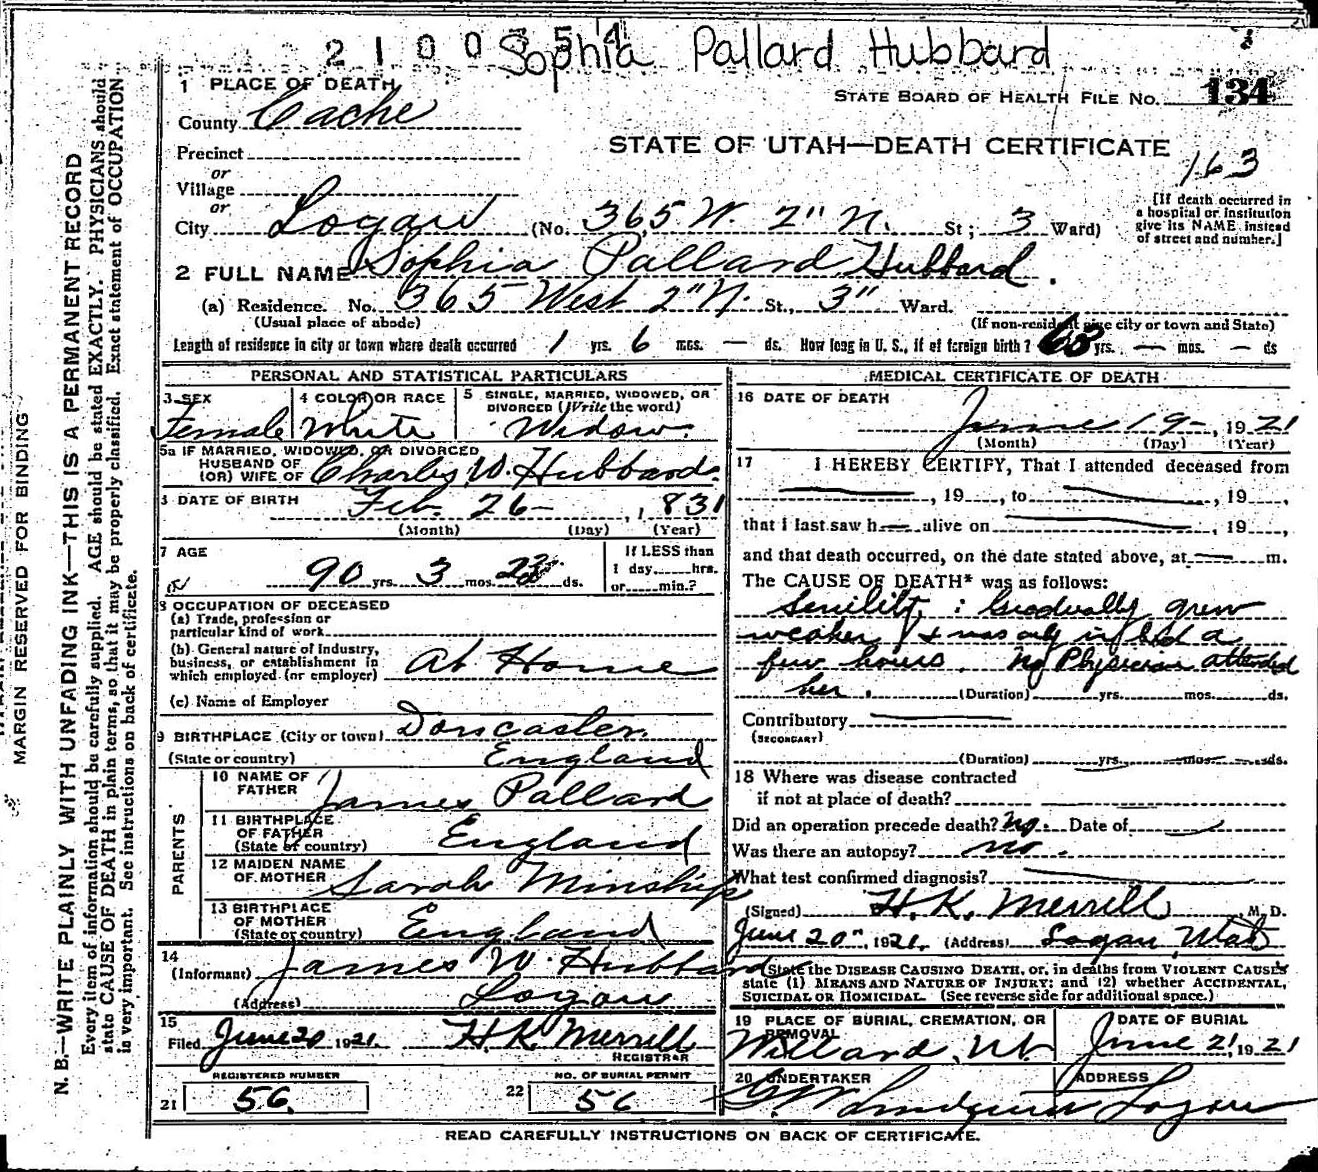 2 1 0 0 3 5 4
Sophia Pallard Hubbard
1 PLACE OF DEATH
STATE BOARD OF HEALTH FILE NO. 134
County Cache
STATE OF UTAH—DEATH CERTIFICATE
163
Precinct
or
Village
or
City Logan (No. 365 W. 2" N. St; 3 Ward)
[If death occurred in
a hospital or institution
give its NAME instead
of street and number.]
2 FULL NAME Sophia Pallard Hubbard.
(a) Residence. No. 365 West 2" N. St., 3" Ward.
(Usual place of abode) (If non-resident give city or town and State)
Length of residence in city or town where death occurred 1 yrs. 6 mos. — ds. How long in U. S., if of foreign birth? 63 yrs. — mos. — ds
PERSONAL AND STATISTICAL PARTICULARS
3 SEX Female
4 COLOR OR RACE White
5 SINGLE, MARRIED, WIDOWED, OR
DIVORCED (Write the word)
Widow.
5a IF MARRIED, WIDOWED, OR DIVORCED
HUSBAND OF
(OR) WIFE OF Charles W. Hubbard.
DATE OF BIRTH Feb. 26—, 1831
(Month) (Day) (Year)
7 AGE
90 yrs. 3 mos. ds.
If LESS than
1 day hrs.
or min.?
8 OCCUPATION OF DECEASED
(a) Trade, profession or
particular kind of work
(b) General nature of Industry,
business, or establishment in
which employed (or employer) At Home
(c) Name of Employer
9 BIRTHPLACE (City or town) Doncaster.
(State or country) England
PARENTS
10 NAME OF
FATHER James Pallard
11 BIRTHPLACE
OF FATHER
(State or country) England
12 MAIDEN NAME
OF MOTHER Sarah Minship
13 BIRTHPLACE
OF MOTHER
(State or country) England
14
(Informant) James W. Hubbard
(Address) Logan
15
Filed June 20 1921. H. K. Merrill
REGISTRAR
REGISTERED NUMBER
21 56.
NO. OF BURIAL PERMIT
22 56
MEDICAL CERTIFICATE OF DEATH
16 DATE OF DEATH
June 19—, 1921
(Month) (Day) (Year)
17 I HEREBY CERTIFY, That I attended deceased from
—, 19, to —, 19,
that I last saw h— alive on —, 19,
and that death occurred, on the date stated above, at — m.
The CAUSE OF DEATH* was as follows:
Senility: Gradually grew
weaker, & was only in bed a
few hours. No Physician attended
her. (Duration) yrs. mos. ds.
Contributory —
(SECONDARY)
(Duration) yrs. mos. ds.
18 Where was disease contracted
if not at place of death?
Did an operation precede death? No. Date of
Was there an autopsy? no.
What test confirmed diagnosis?
(Signed) H. K. Merrill M. D.
June 20", 1921. (Address) Logan, Utah
*State the DISEASE CAUSING DEATH, or, in deaths from VIOLENT CAUSES
state (1) MEANS AND NATURE OF INJURY; and (2) whether ACCIDENTAL,
SUICIDAL OR HOMICIDAL. (See reverse side for additional space.)
19 PLACE OF BURIAL, CREMATION, OR
REMOVAL
Willard, Ut.
DATE OF BURIAL
June 21, 1921
20 UNDERTAKER
ADDRESS
Logan
READ CAREFULLY INSTRUCTIONS ON BACK OF CERTIFICATE.
MARGIN RESERVED FOR BINDING
N. B.—WRITE PLAINLY WITH UNFADING INK—THIS IS A PERMANENT RECORD
Every item of information should be carefully supplied. AGE should be stated EXACTLY. PHYSICIANS should
state CAUSE OF DEATH in plain terms, so that it may be properly classified. Exact statement of OCCUPATION
is very important. See instructions on back of certificate.